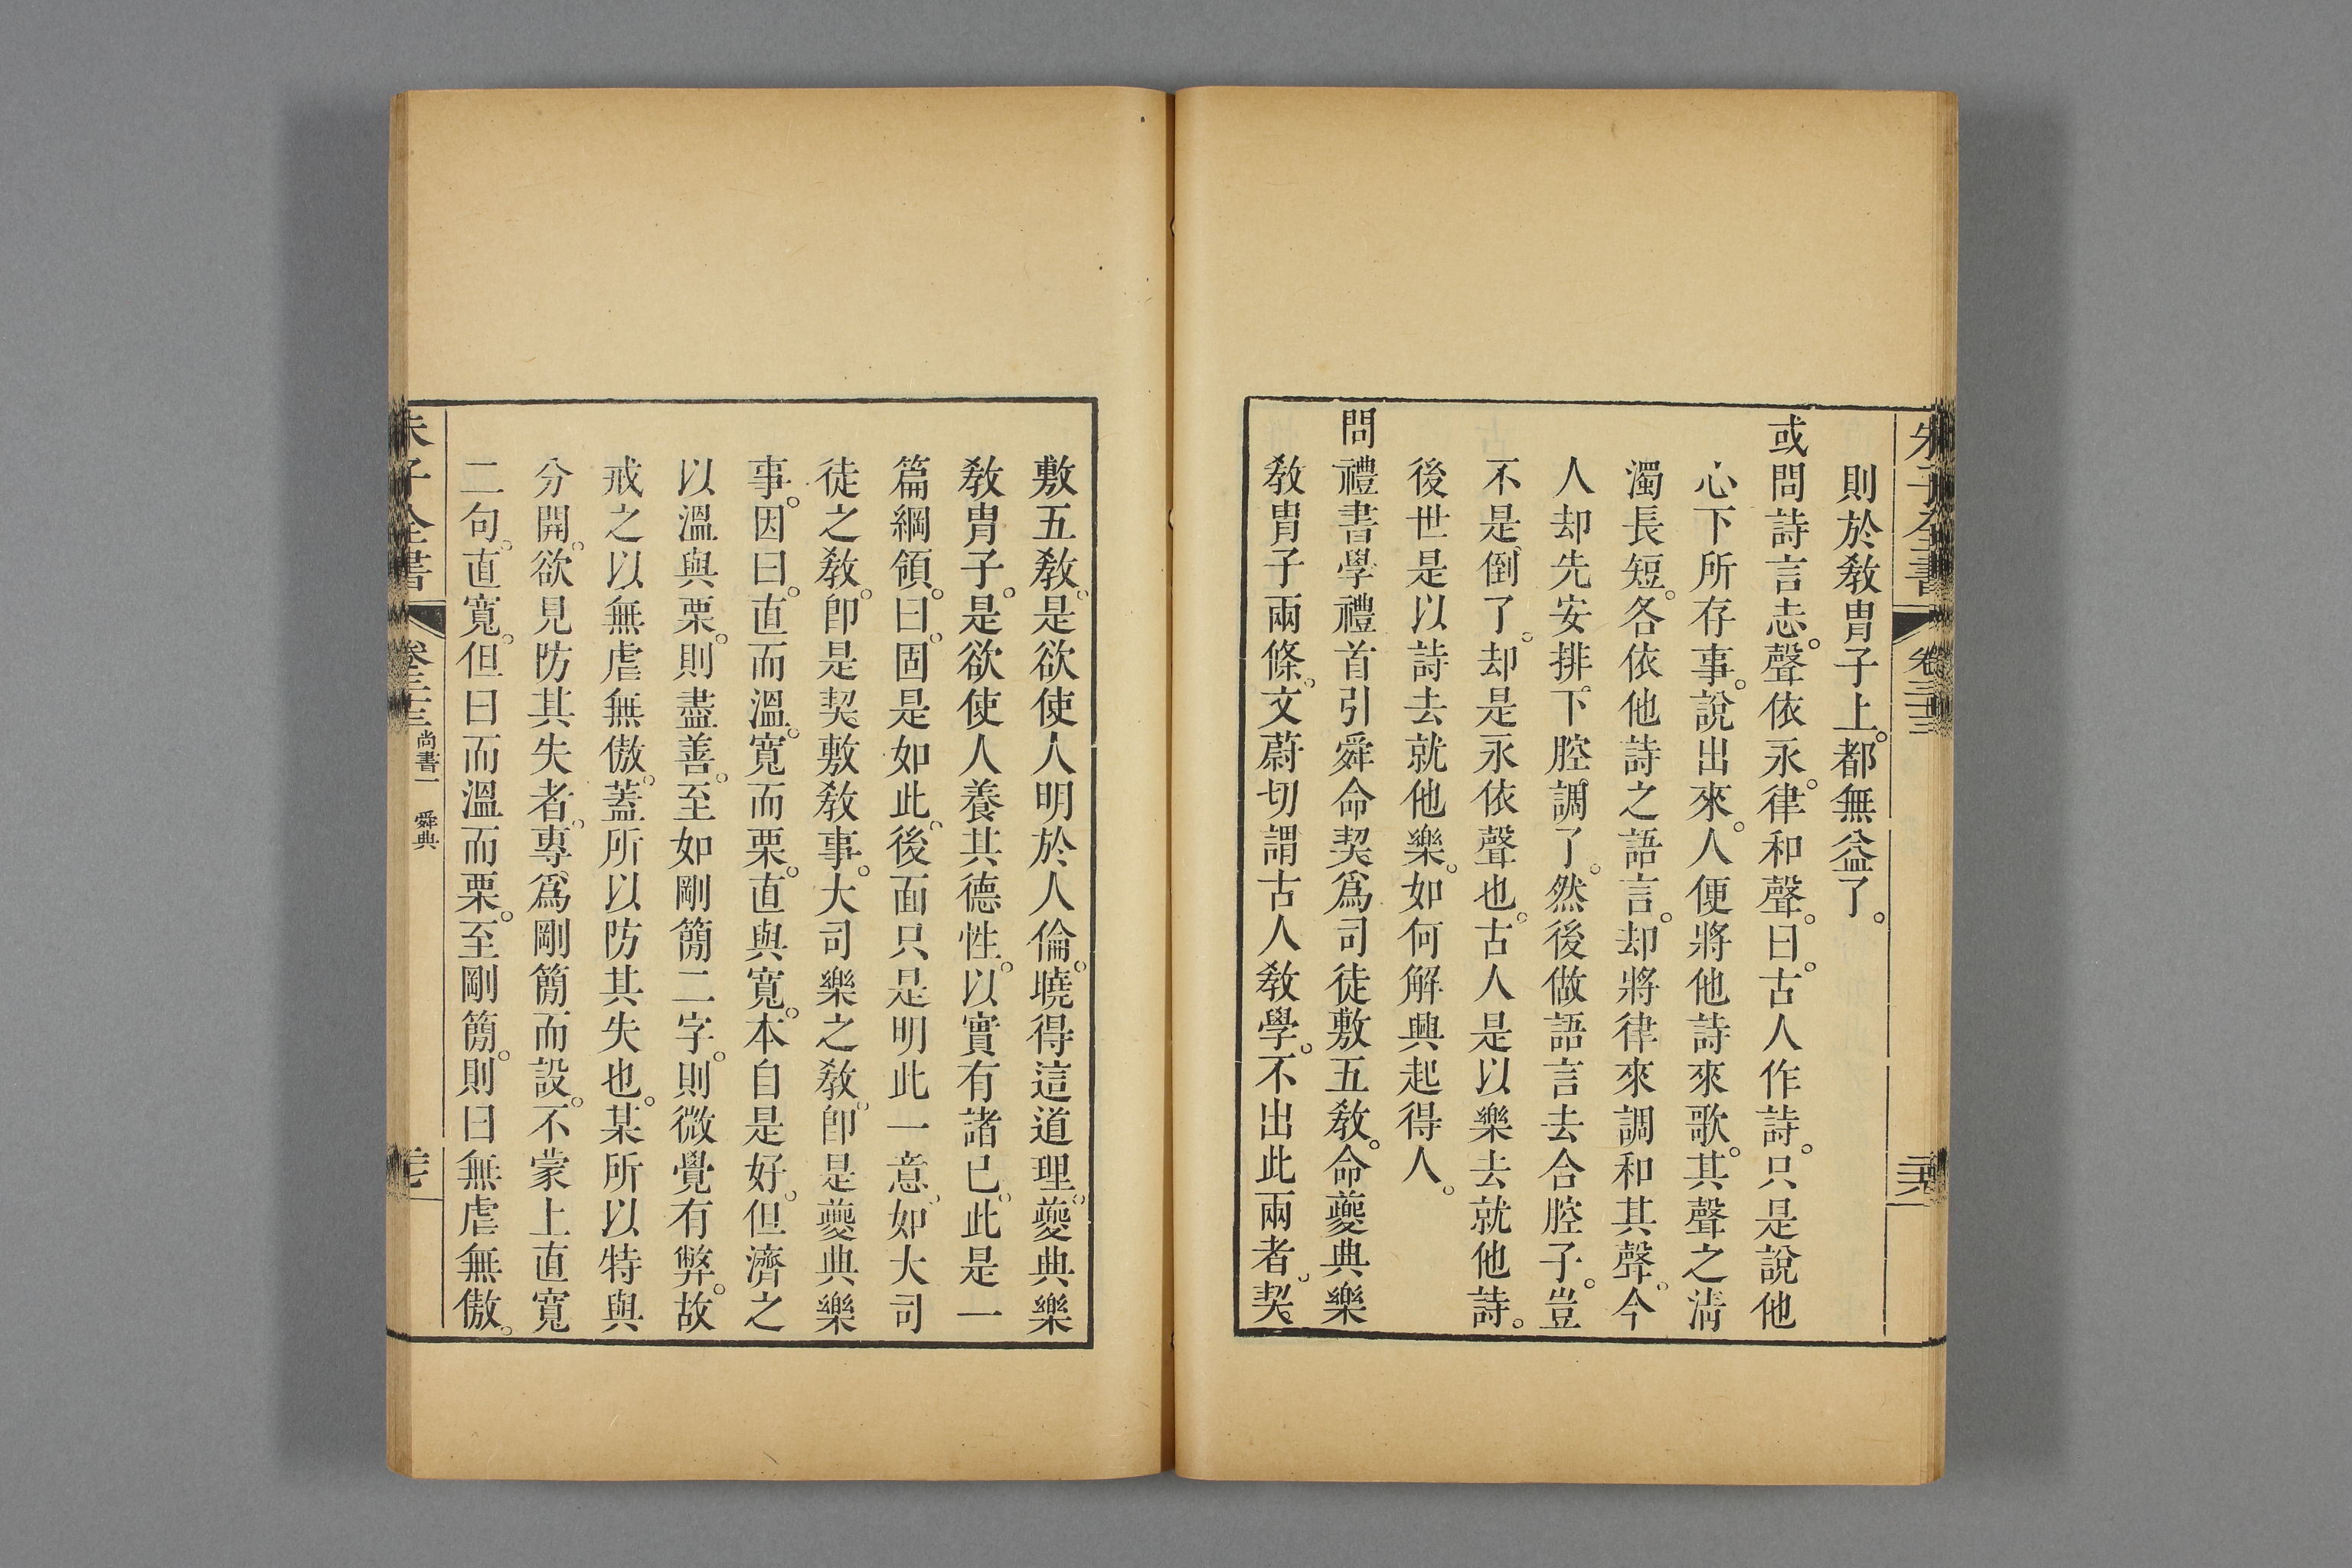 朱子全書 卷三十三 二十六
則於教胄子上。都無益了。
或問詩言志。聲依永。律和聲。曰。古人作詩。只是說他
心下所存事。說出來。人便將他詩來歌。其聲之淸
濁長短。各依他詩之語言。却將律來調和其聲。今
人却先安排下腔調了。然後做語言去合腔子。豈
不是倒了。却是永依聲也。古人是以樂去就他詩。
後世是以詩去就他樂。如何解興起得人。
問禮書學禮首引舜命契爲司徒敷五教。命夔典樂
教胄子兩條。文蔚切謂古人教學。不出此兩者。契
敷五教。是欲使人明於人倫。曉得這道理。夔典樂
教胄子。是欲使人養其德性。以實有諸已。此是一
篇綱領。曰。固是如此。後面只是明此一意。如大司
徒之教。卽是契敷教事。大司樂之教。卽是夔典樂
事。因曰。直而溫。寬而栗。直與寬。本自是好。但濟之
以溫與栗。則盡善。至如剛簡二字。則微覺有弊。故
戒之以無虐無傲。蓋所以防其失也。某所以特與
分開。欲見防其失者。專爲剛簡而設。不蒙上直寬
二句。直寬。但曰而溫而栗。至剛簡。則曰無虐無傲。
朱子全書 卷三十三 尚書一 舜典 二十七